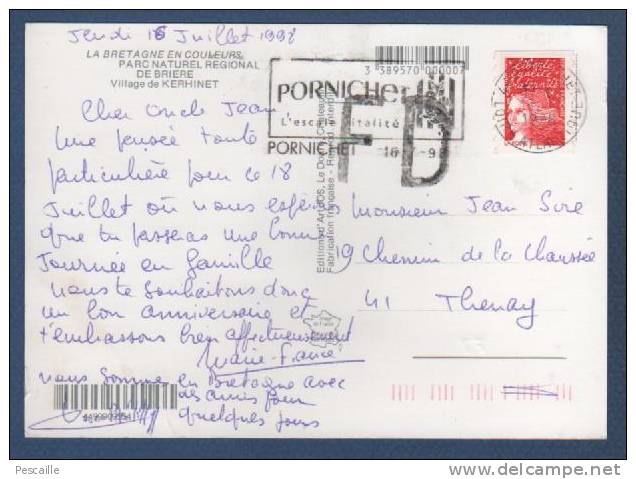 Jeudi 16 Juillet 1998
LA BRETAGNE EN COULEURS
PARC NATUREL REGIONAL
DE BRIERE
Village de KERHINET
Cher Oncle Jean
Une pensée toute
particulière pour ce 18
Juillet où nous espérons
que tu passeras une bonne
Journée en famille
nous te souhaitons donc
un bon anniversaire et
t'embrassons bien affectueusement
Marie-France
nous sommes en Bretagne avec
des amis pour
quelques jours
3 389570 000007
PORNICHET
L'escale vitalité
PORNICHET 16 -98
FD
Liberté
égalité
fraternité
Editions d'Art JOS, Le Doaré,
Fabrication française -
Monsieur Jean Siré
19 Chemin de la Chaussée
41 Thenay
Pescaille
www.delcampe.net